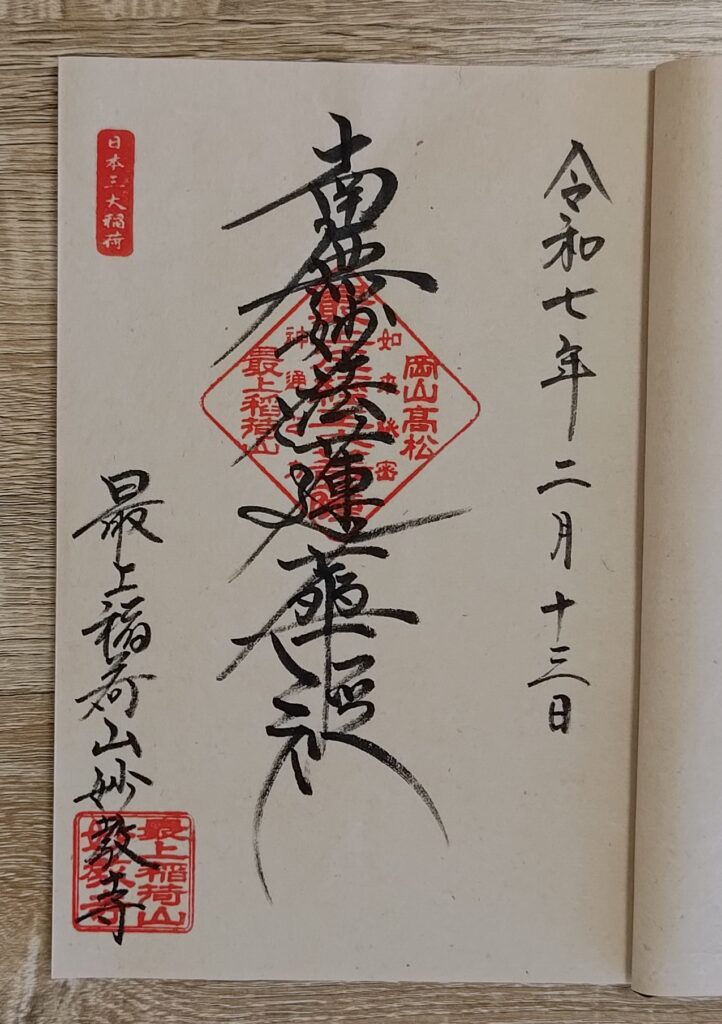 令和七年 二月 十三日
南無妙法蓮華経
岡山高松
如来秘密
神通之力
最上稲荷山
最上稲荷山妙教寺
最上稲荷山
日本三大稲荷